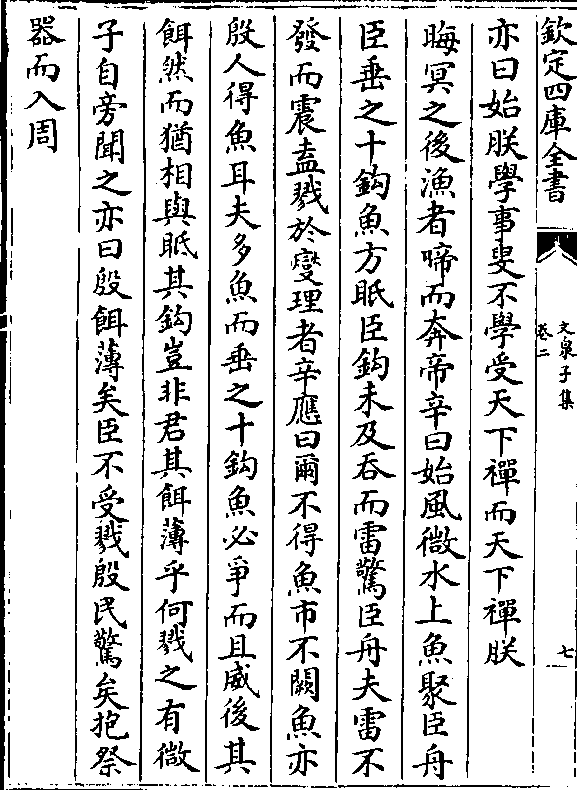 欽定四庫全書
文泉子集
卷二
七
亦曰始朕學事叟不學受天下禪而天下禪朕
晦冥之後漁者啼而奔帝辛曰始風微水上魚聚臣舟
臣垂之十鈎魚方眂臣鈎未及吞而雷驚臣舟夫雷不
發而震盍戮於燮理者辛應曰爾不得魚市不闕魚亦
殷人得魚耳夫多魚而垂之十鈎魚必爭而且威後其
餌然而猶相與眂其鈎豈非君其餌薄乎何戮之有微
子自旁聞之亦曰殷餌薄矣臣不受戮殷民驚矣抱祭
器而入周